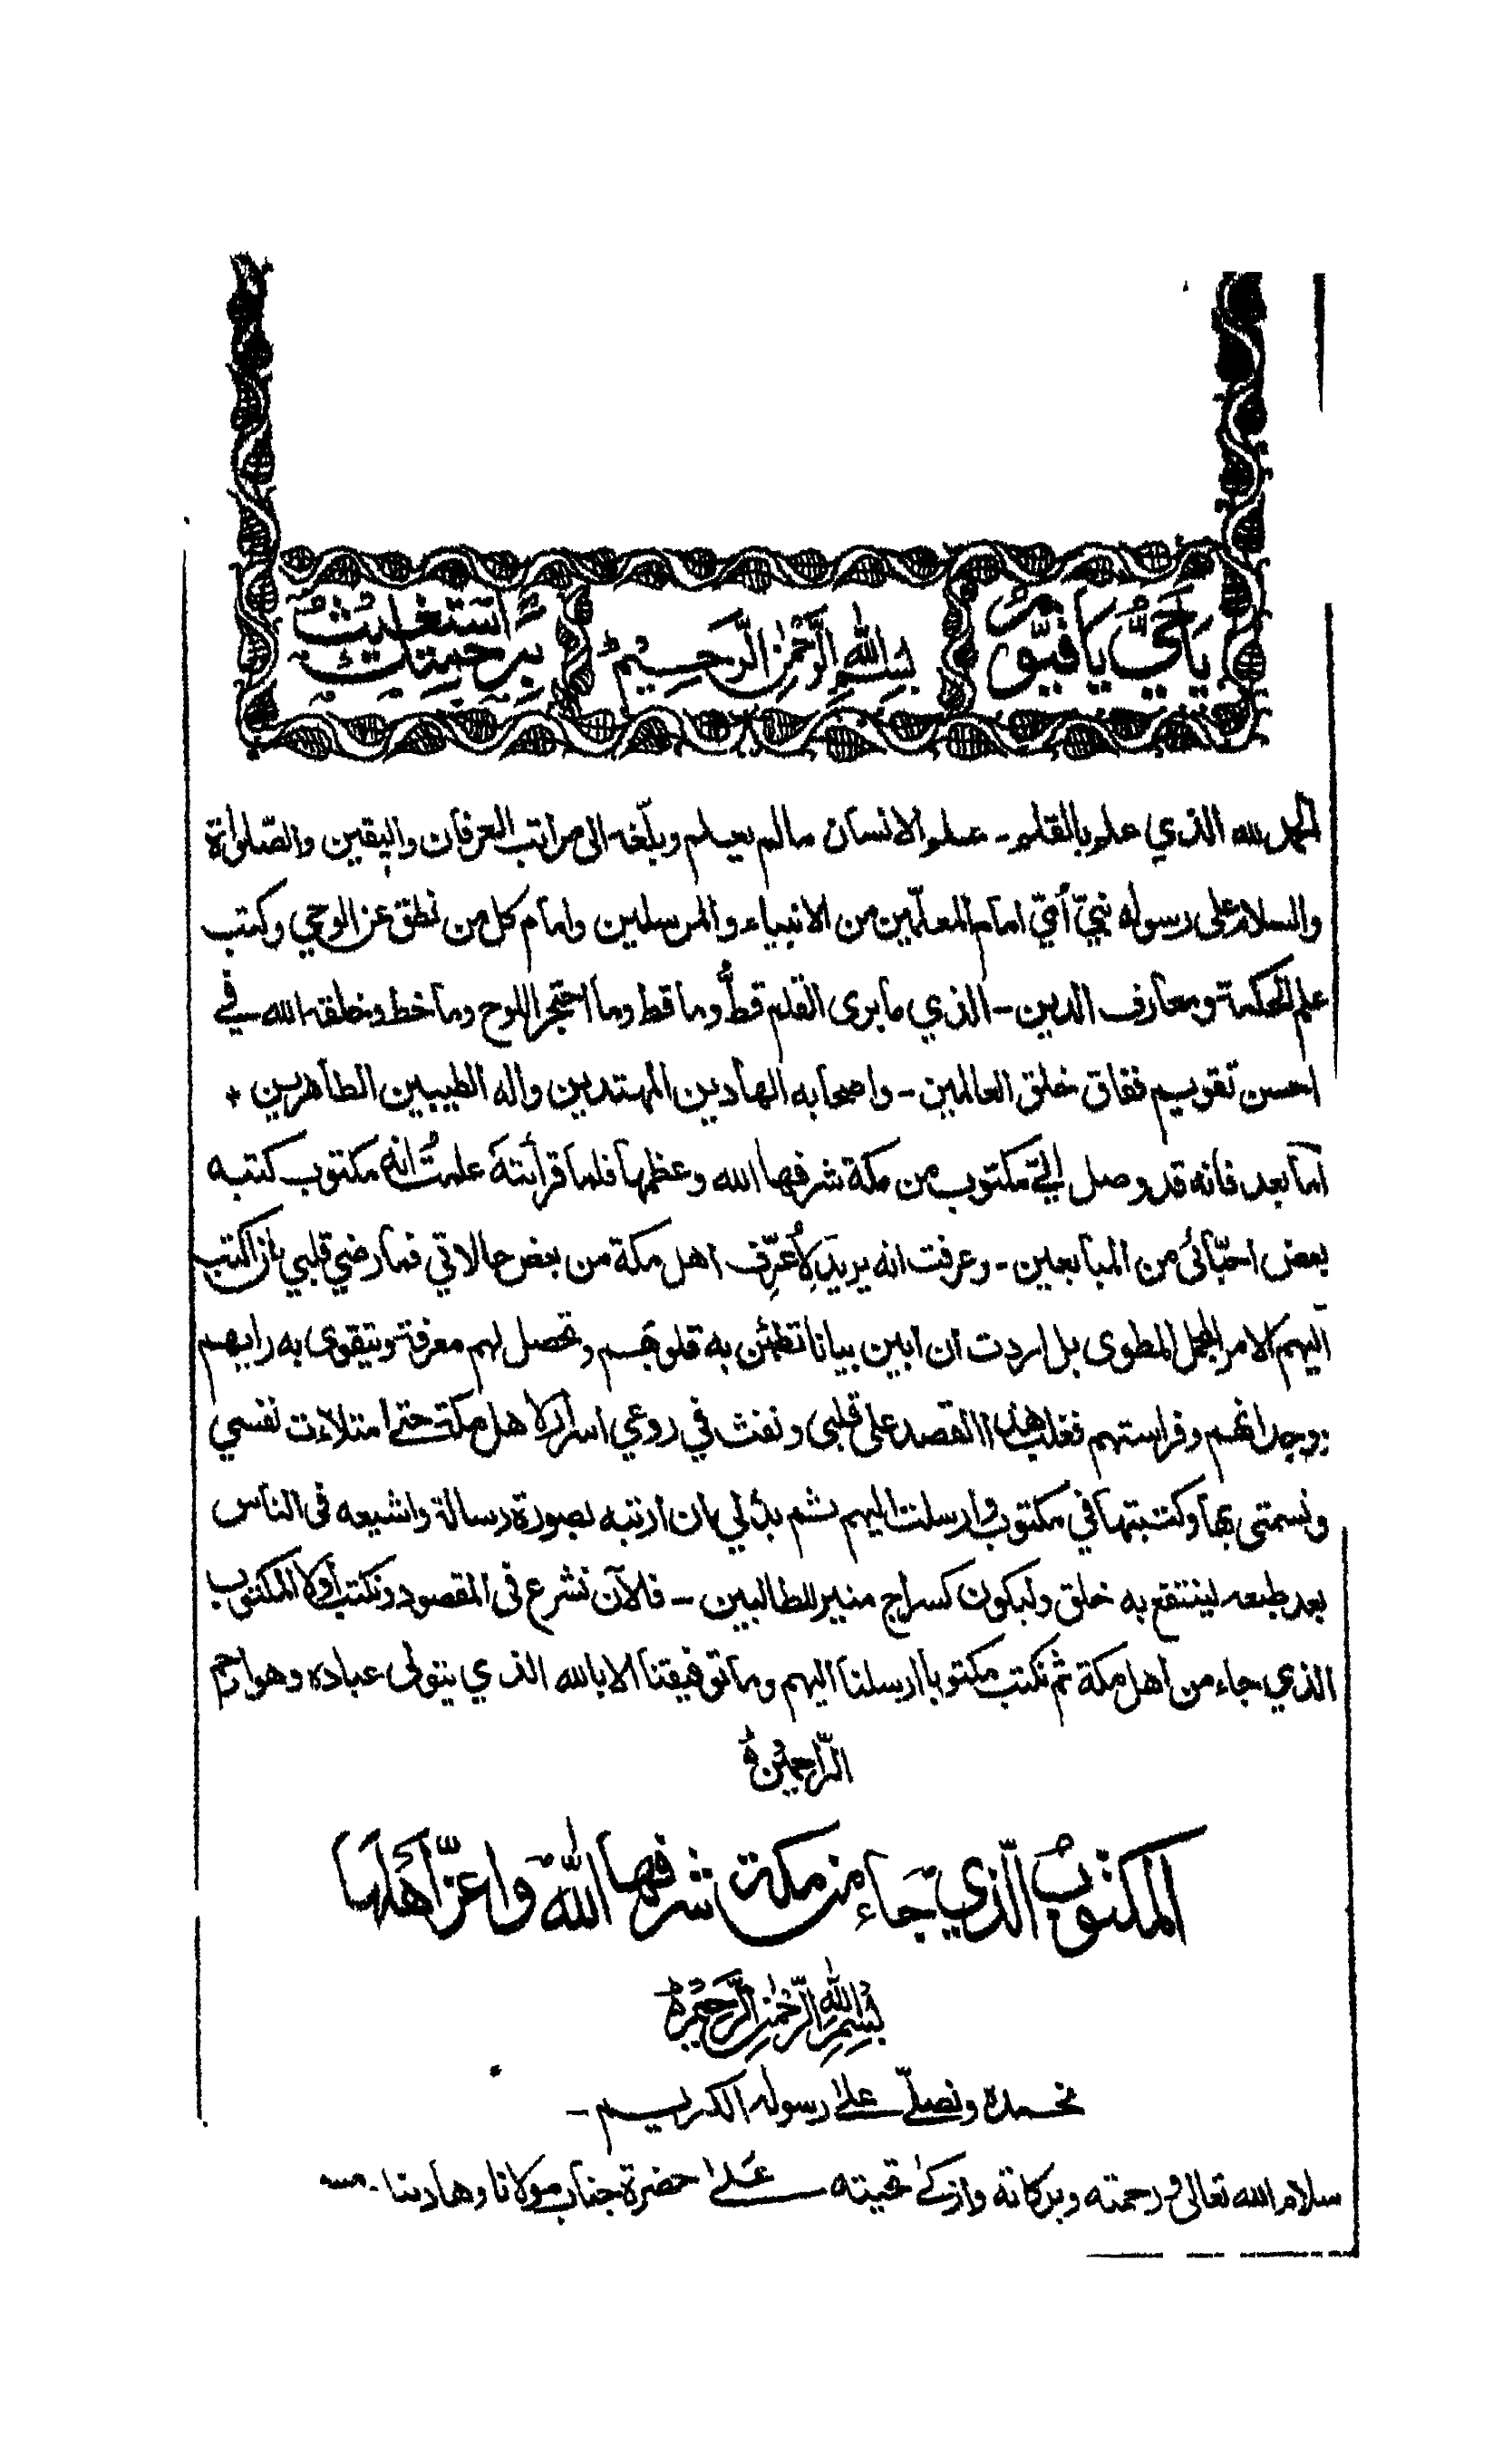 يَا حَيُّ يَا قَيُّوْمُ
بِسْمِ اللّٰهِ الرَّحْمٰنِ الرَّحِيْمِ
بِرَحْمَتِكَ اَسْتَغِيْثُ
الحمد لله الذي علم بالقلم - علم الانسان مالم يعلم وبلّغه الى مراتب العرفان واليقين والصّلوٰة
والسلام على رسوله نبيّ أميّ امام المعلّمين من الانبياء والمرسلين وامام كل من نطق عن الوحي وكتب
علم الحكمة ومعارف الدين - الذي ما برى القلم قطُّ وما قط وما احتجر اللوح وما خط وخلقه الله في
احسن تقويم ففاق خلق العالمين - واصحابه الهادين المهتدين واٰله الطيبين الطاهرين *
امّا بعد فانه قد وصل اليّ مكتوب من مكة شرفها الله وعظمها فلما قرأتهٗ علمتُ انه مكتوب كتبه
بعض احبّائى من المبايعين - وعرفت انه يريد لِأُعَرِّف اهل مكة من بعض حالاتي فما رضي قلبي بان اكتب
اليهم الامر المجمل المطوى بل اردت ان ابين بيانا تطمئن به قلوبهم وتحصل لهم معرفة ويتقوى به رايهم
ووجدانهم وفراستهم فغلب هذا القصد على قلبي ونفث في روعي اسرار لاهل مكة حتى امتلاءت نفسي
ونسمتي بها وكتبتها في مكتوب وارسلت اليهم ثم بدا لي بان ارتبه بصورة رسالة واشيعه في الناس
بعد طبعه لينتفع به خلق وليكون كسراج منير للطالبين - فالآن نشرع في المقصود ونكتب أولا المكتوب
الذي جاء من اهل مكة ثم نكتب مكتوبا ارسلنا اليهم وما توفيقنا الا بالله الذي يتولى عباده وهو ارحم
الرّاحمين
المكتوبُ الّذي جاء من مكة شرفها اللّٰهُ واعزّ أَهْلَهَا
بِسْمِ اللّٰهِ الرَّحْمٰنِ الرَّحِيْمِ
نحمده ونصلّي على رسوله الكريم -
سلام الله تعالى ورحمته وبركاته وازكى تحيته على حضرة جناب مولانا وهادينا